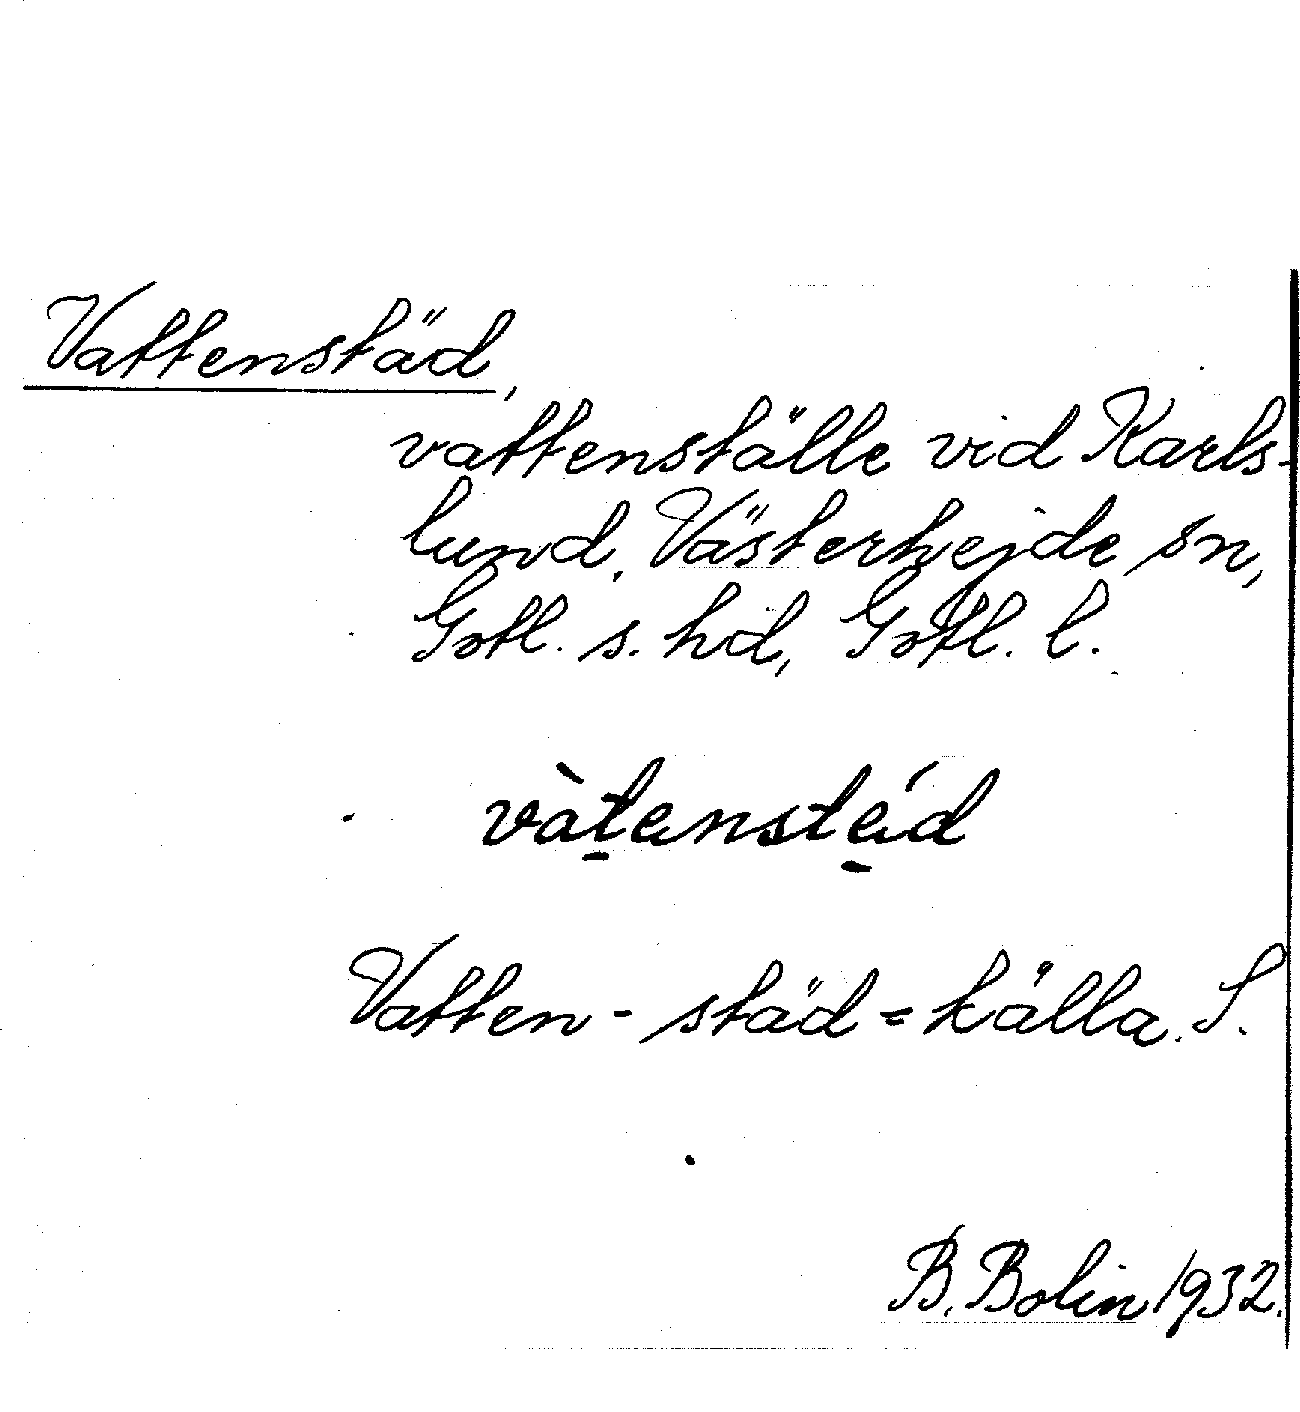 Vattenstäd,
vattenställe vid Karls-
lund, Västerhejde sn,
Gotl. s. hd, Gotl. l.
vàt̠ensté̠d
Vatten - städ = källa. S.
B. Bolin 1932.